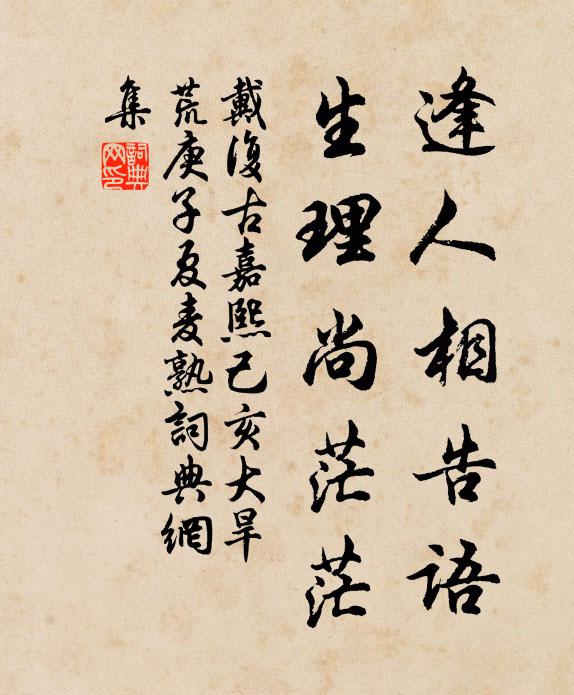 逢人相告语
生理尚茫茫
戴復古嘉熙己亥大旱
荒庚子夏麦熟詞典網
集
詞典
网印